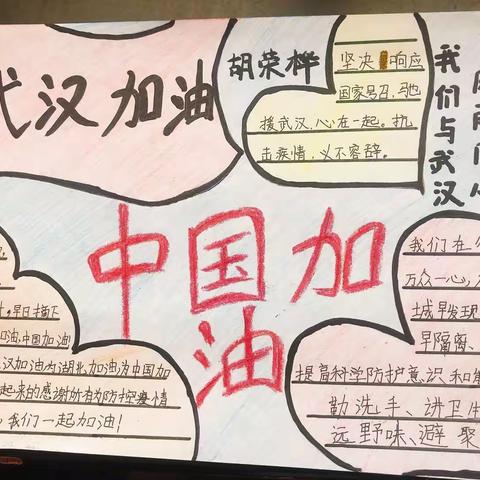 武汉加油
胡荣桦
坚决响应
国家号召,驰
援武汉,心在一起。抗
击疾情,义不容辞。
我们与武汉
中国加
油
早日摘下
加油,中国加油
汉加油为湖北加油为中国加
起来的感谢所有防控疫情
我们一起加油!
我们在
万众一心,
城早发现
早隔离、
提高科学防护意识和
勤洗手、讲卫生
远野味、避聚